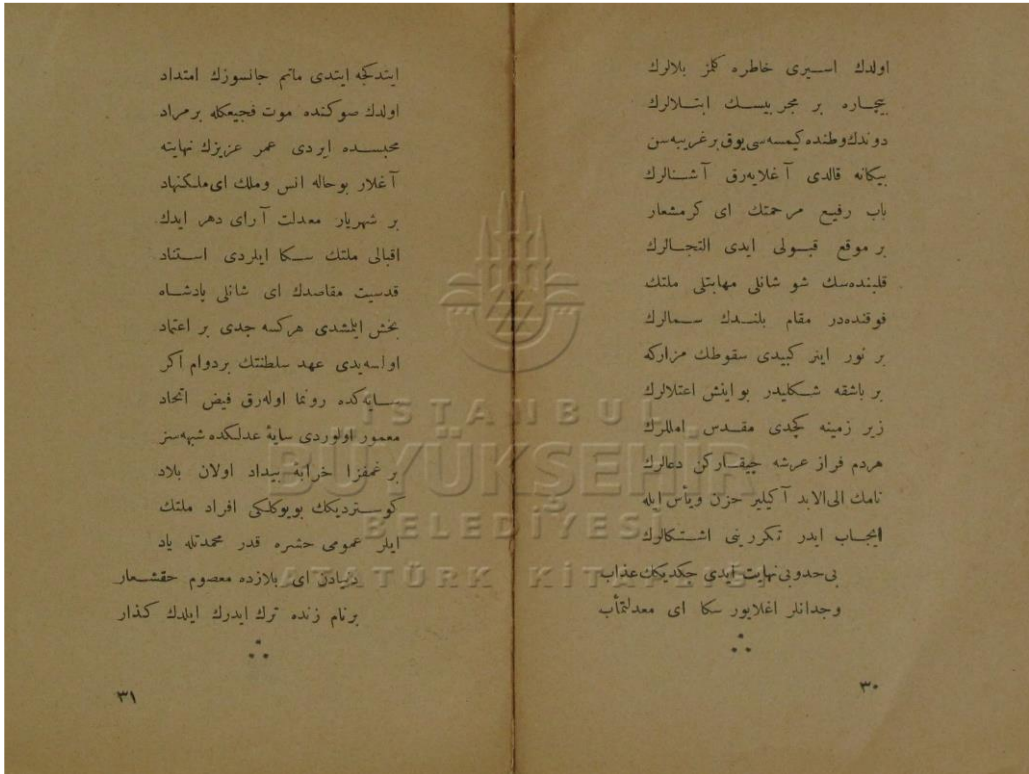 اولدك اسيرى خاطره كلمز بلالرك
بيچاره بر مجربيسك ابتلالرك
دوندك وطنده كيمسه‌سى يوق برغريبه‌سن
بيكانه قالدى آغلايه‌رق آشنالرك
باب رفيع مرحمتك اى كرمشعار
بر موقع قبولى ايدى التجالرك
قلبنده‌سك شو شانلى مهابتلى ملتك
فوقنده‌در مقام بلندك سمالرك
بر نور اينر كبيدى سقوطك مزاركه
بر باشقه شكليدر بو اينش اعتلالرك
زير زمينه كچدى مقدس امللرك
هردم فراز عرشه چيقاركن دعالرك
نامك الى‌الابد آكيلير حزن ويأس ايله
ايجاب ايدر تكررينى اشتكالرك
بى‌حدوبى‌نهايت ايدى چكديكك عذاب
وجدانلر اغلايور سكا اى معدلتمأب
٣٠
ايتدكجه ايتدى ماتم جانسوزك امتداد
اولدك صوكنده موت فجيعكله برمراد
محبسده ايردى عمر عزيزك نهايته
آغلار بوحاله انس وملك اى ملكنهاد
بر شهريار معدلت آراى دهر ايدك
اقبالى ملتك سكا ايلردى استناد
قدسيت مقاصدك اى شانلى پادشاه
بخش ايلمشدى هركسه جدى بر اعتماد
اولسه‌يدى عهد سلطنتك بردوام اكر
سايه‌كده رونما اوله‌رق فيض اتحاد
معمور اولوردى سايۀ عدلكده شبهه‌سز
بر غمفزا خرابۀ بيداد اولان بلاد
كوستردیكك بويوكلكى افراد ملتك
ايلر عمومى حشره قدر محمدتله ياد
دنيادن اى بلازده معصوم حقشعار
برنام زنده ترك ايدرك ايلدك كذار
٣١
ISTANBUL
BÜYÜKŞEHİR
BELEDİYESİ
ATATÜRK KİTAPLIĞI